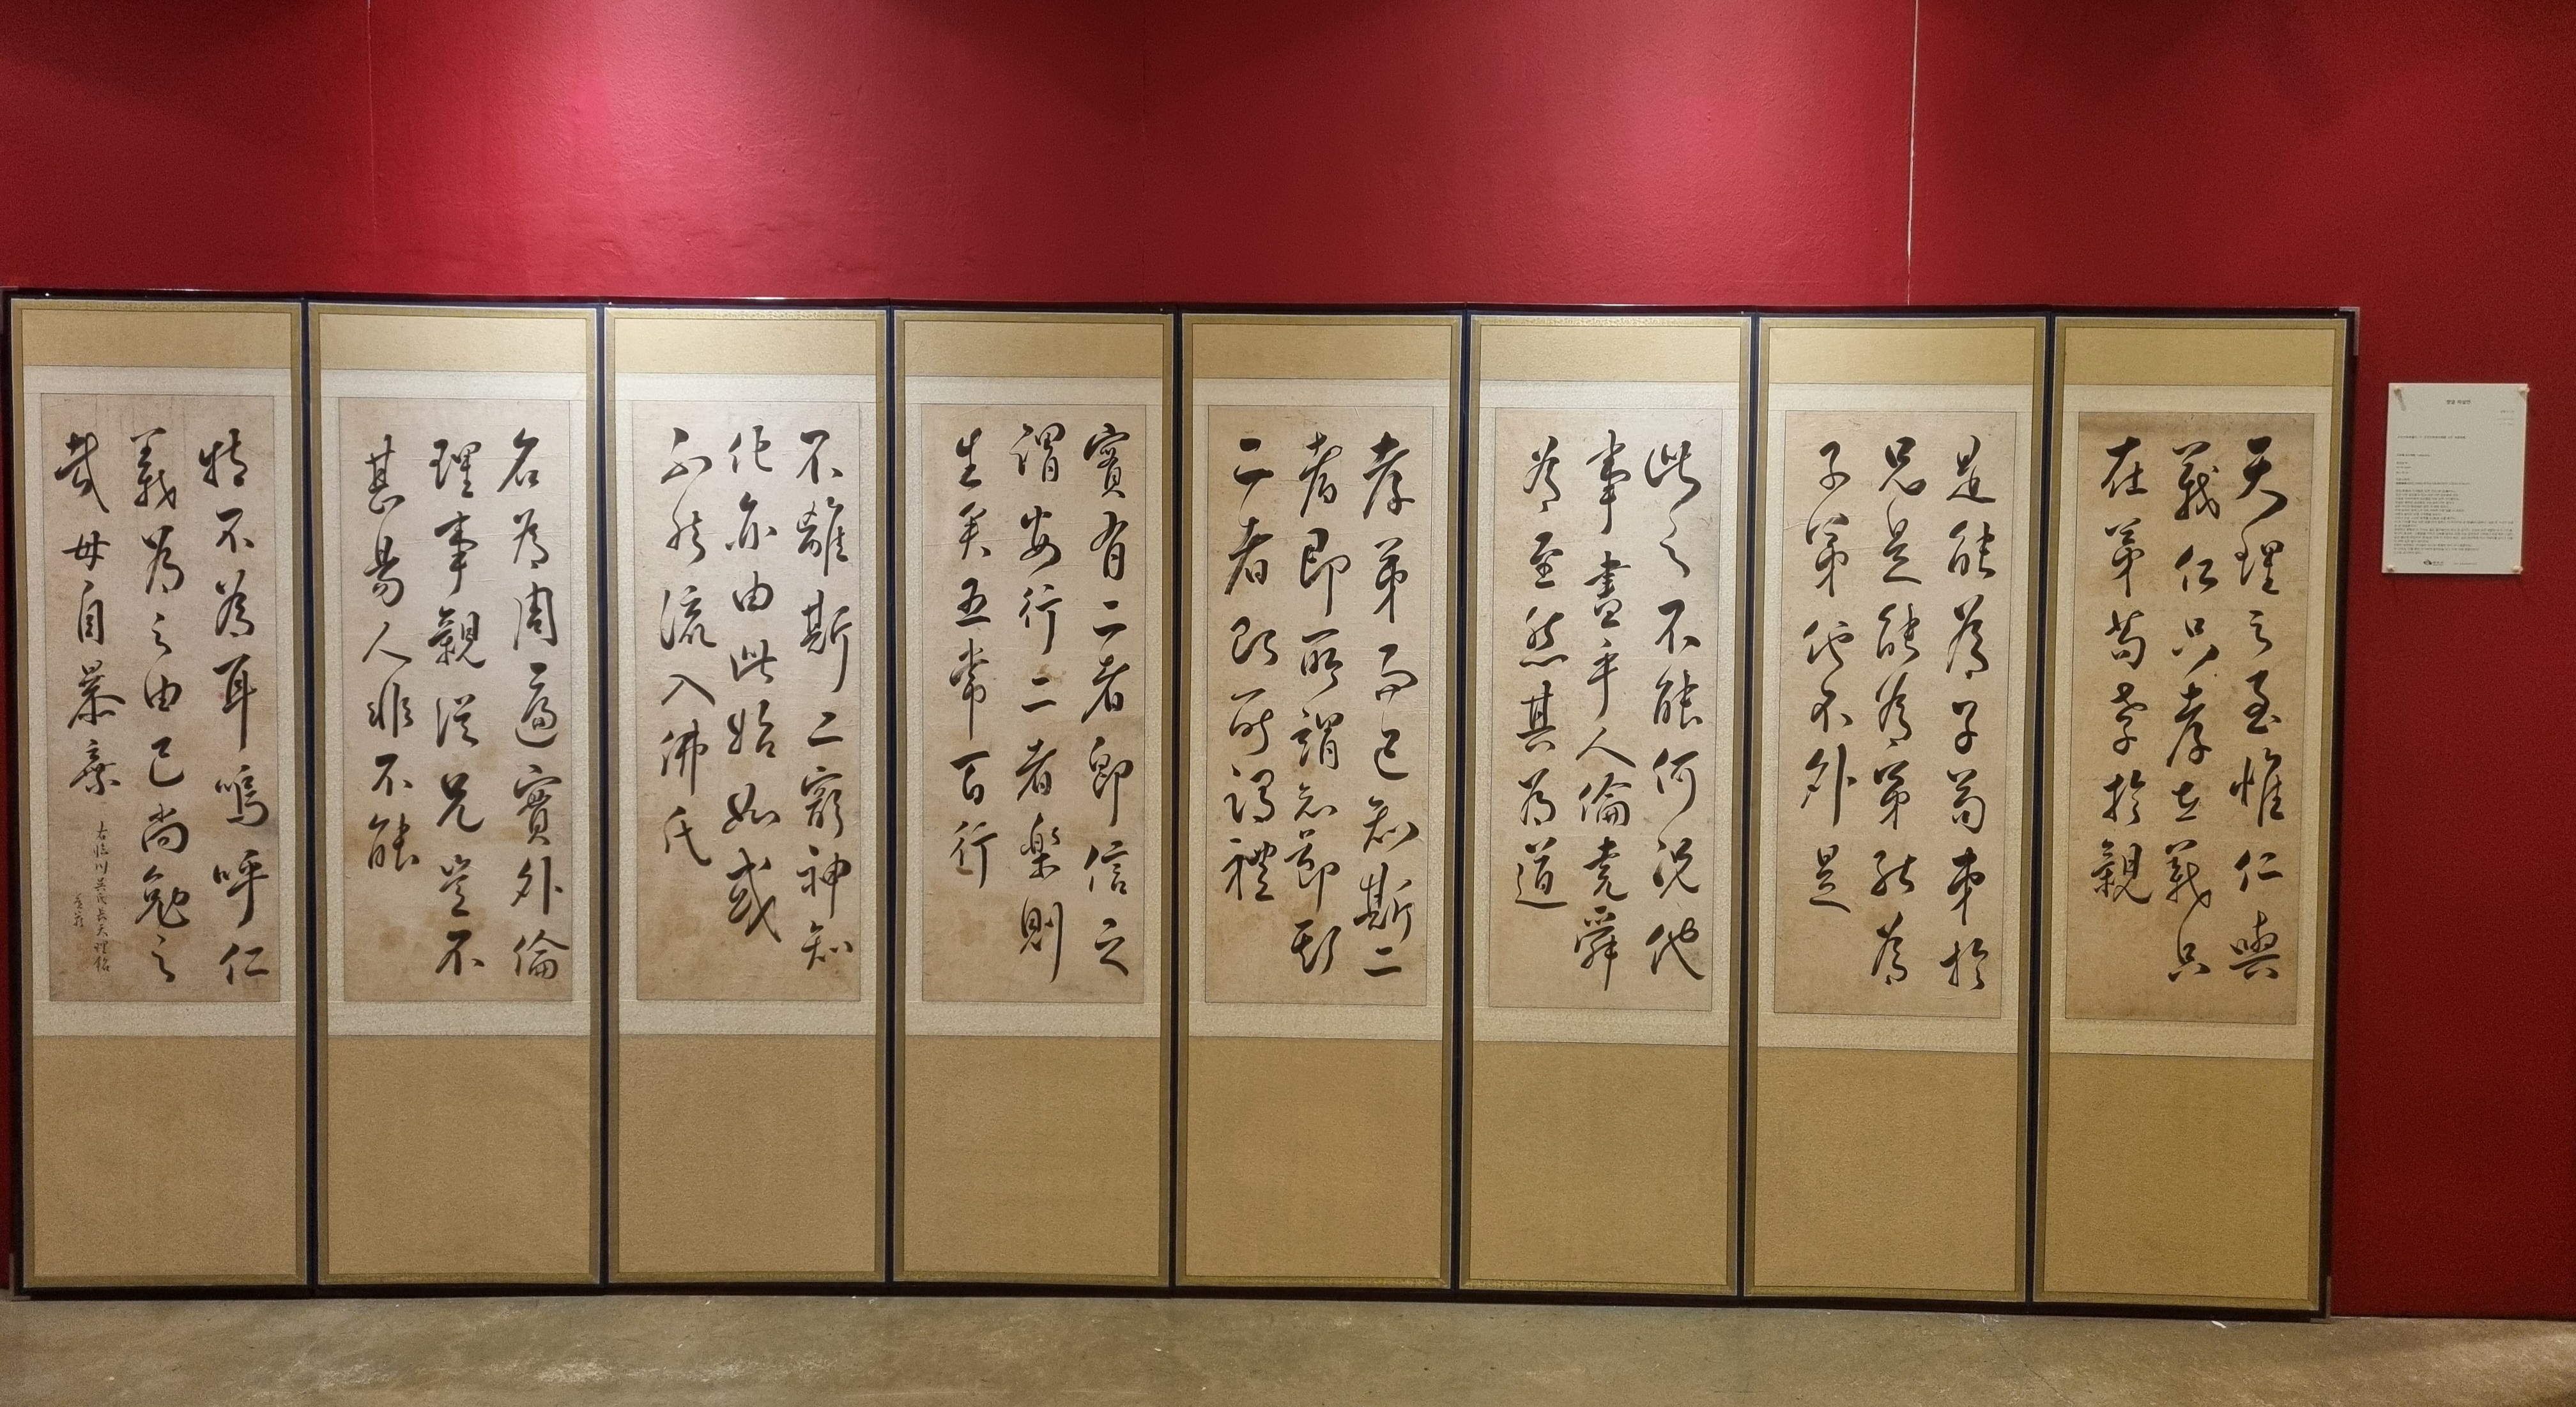 天理之至惟仁與
義仁只孝在義只
在弟苟孝於親
是能為子苟弟於
兄是能為弟能為
子弟他不外是
此之不能何況他
事盡乎人倫堯舜
為至然其為道
孝弟而已知斯二
者即所謂知節斯
二者即所謂禮
實有二者即信之
謂安行二者樂則
生矣五常百行
不離斯二窮神知
化亦由此始如或
不然流入佛氏
名為周遍實外倫
理事親從兄豈不
甚易人非不能
特不為耳嗚呼仁
義為之由己尚勉之
哉毋自暴棄
右臨川吳氏天理銘